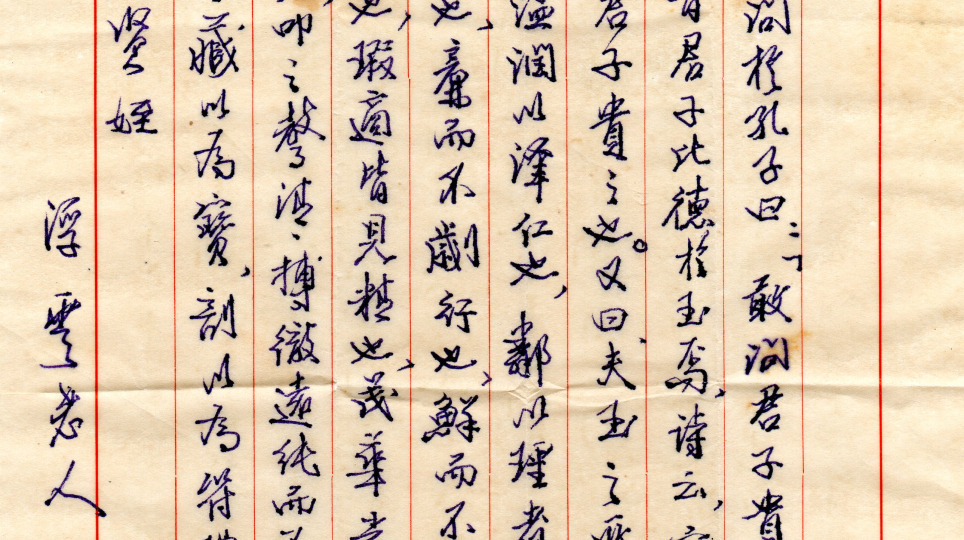 问於孔子曰：「敢问君子貴
君子比德於玉焉，诗云，
君子貴之也。又曰、夫玉之所
温润以泽仁也，鄰以理者
也，廉而不劌行也，鮮而不
也，瑕適皆見精也，茂華光
叩之聲清、搏徹遠純而
藏以為寶，剖以為符
贤姪
浮雲老人